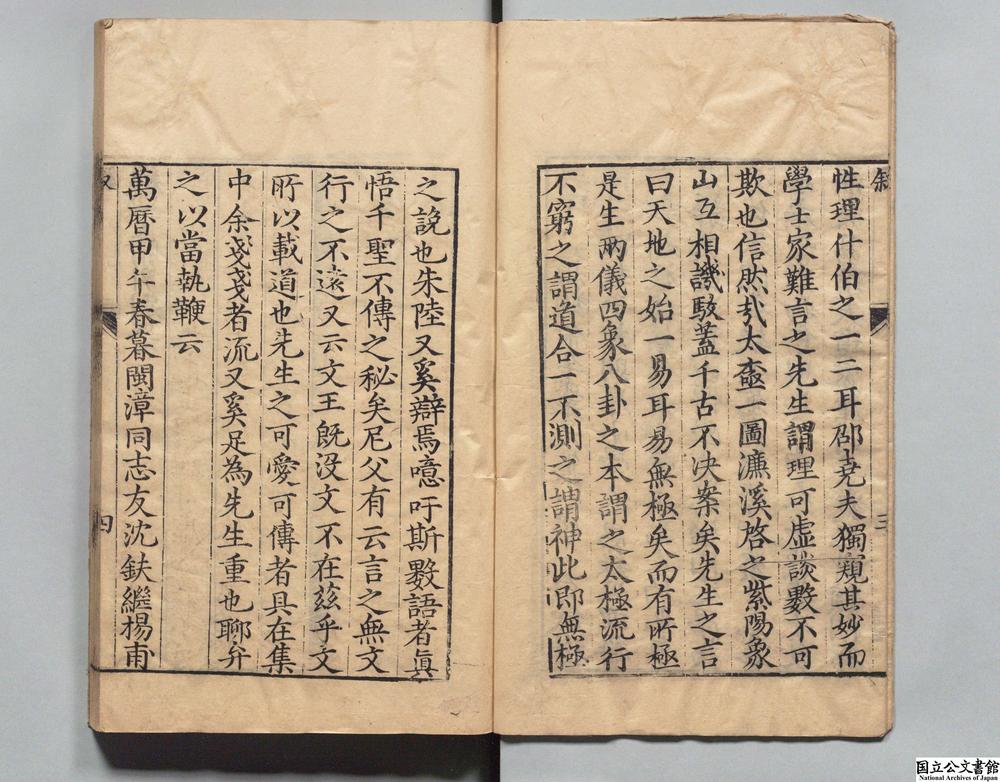 叙
三
性理什伯之一二耳邵尭夫獨窺其妙而
學士家難言之先生謂理可虚談數不可
欺也信然㦲太極一圖濂溪啓之紫陽象
山互相譏駁蓋千古不决案矣先生之言
曰天地之始一易耳易無極矣而有所極
是生兩儀四象八卦之本謂之太極流行
不窮之謂道合一不測之謂神此即無極
之説也朱陸又奚辯焉噫吁斯數語者眞
悟千聖不傳之秘矣尼父有云言之無文
行之不遠又云文王既没文不在茲乎文
所以載道也先生之可愛可傳者具在集
中余戔戔者流又奚足為先生重也聊弁
之以當執鞭云
萬曆甲午春暮閩漳同志友沈鈇繼楊甫
四
国立公文書館
National Archives of Japan